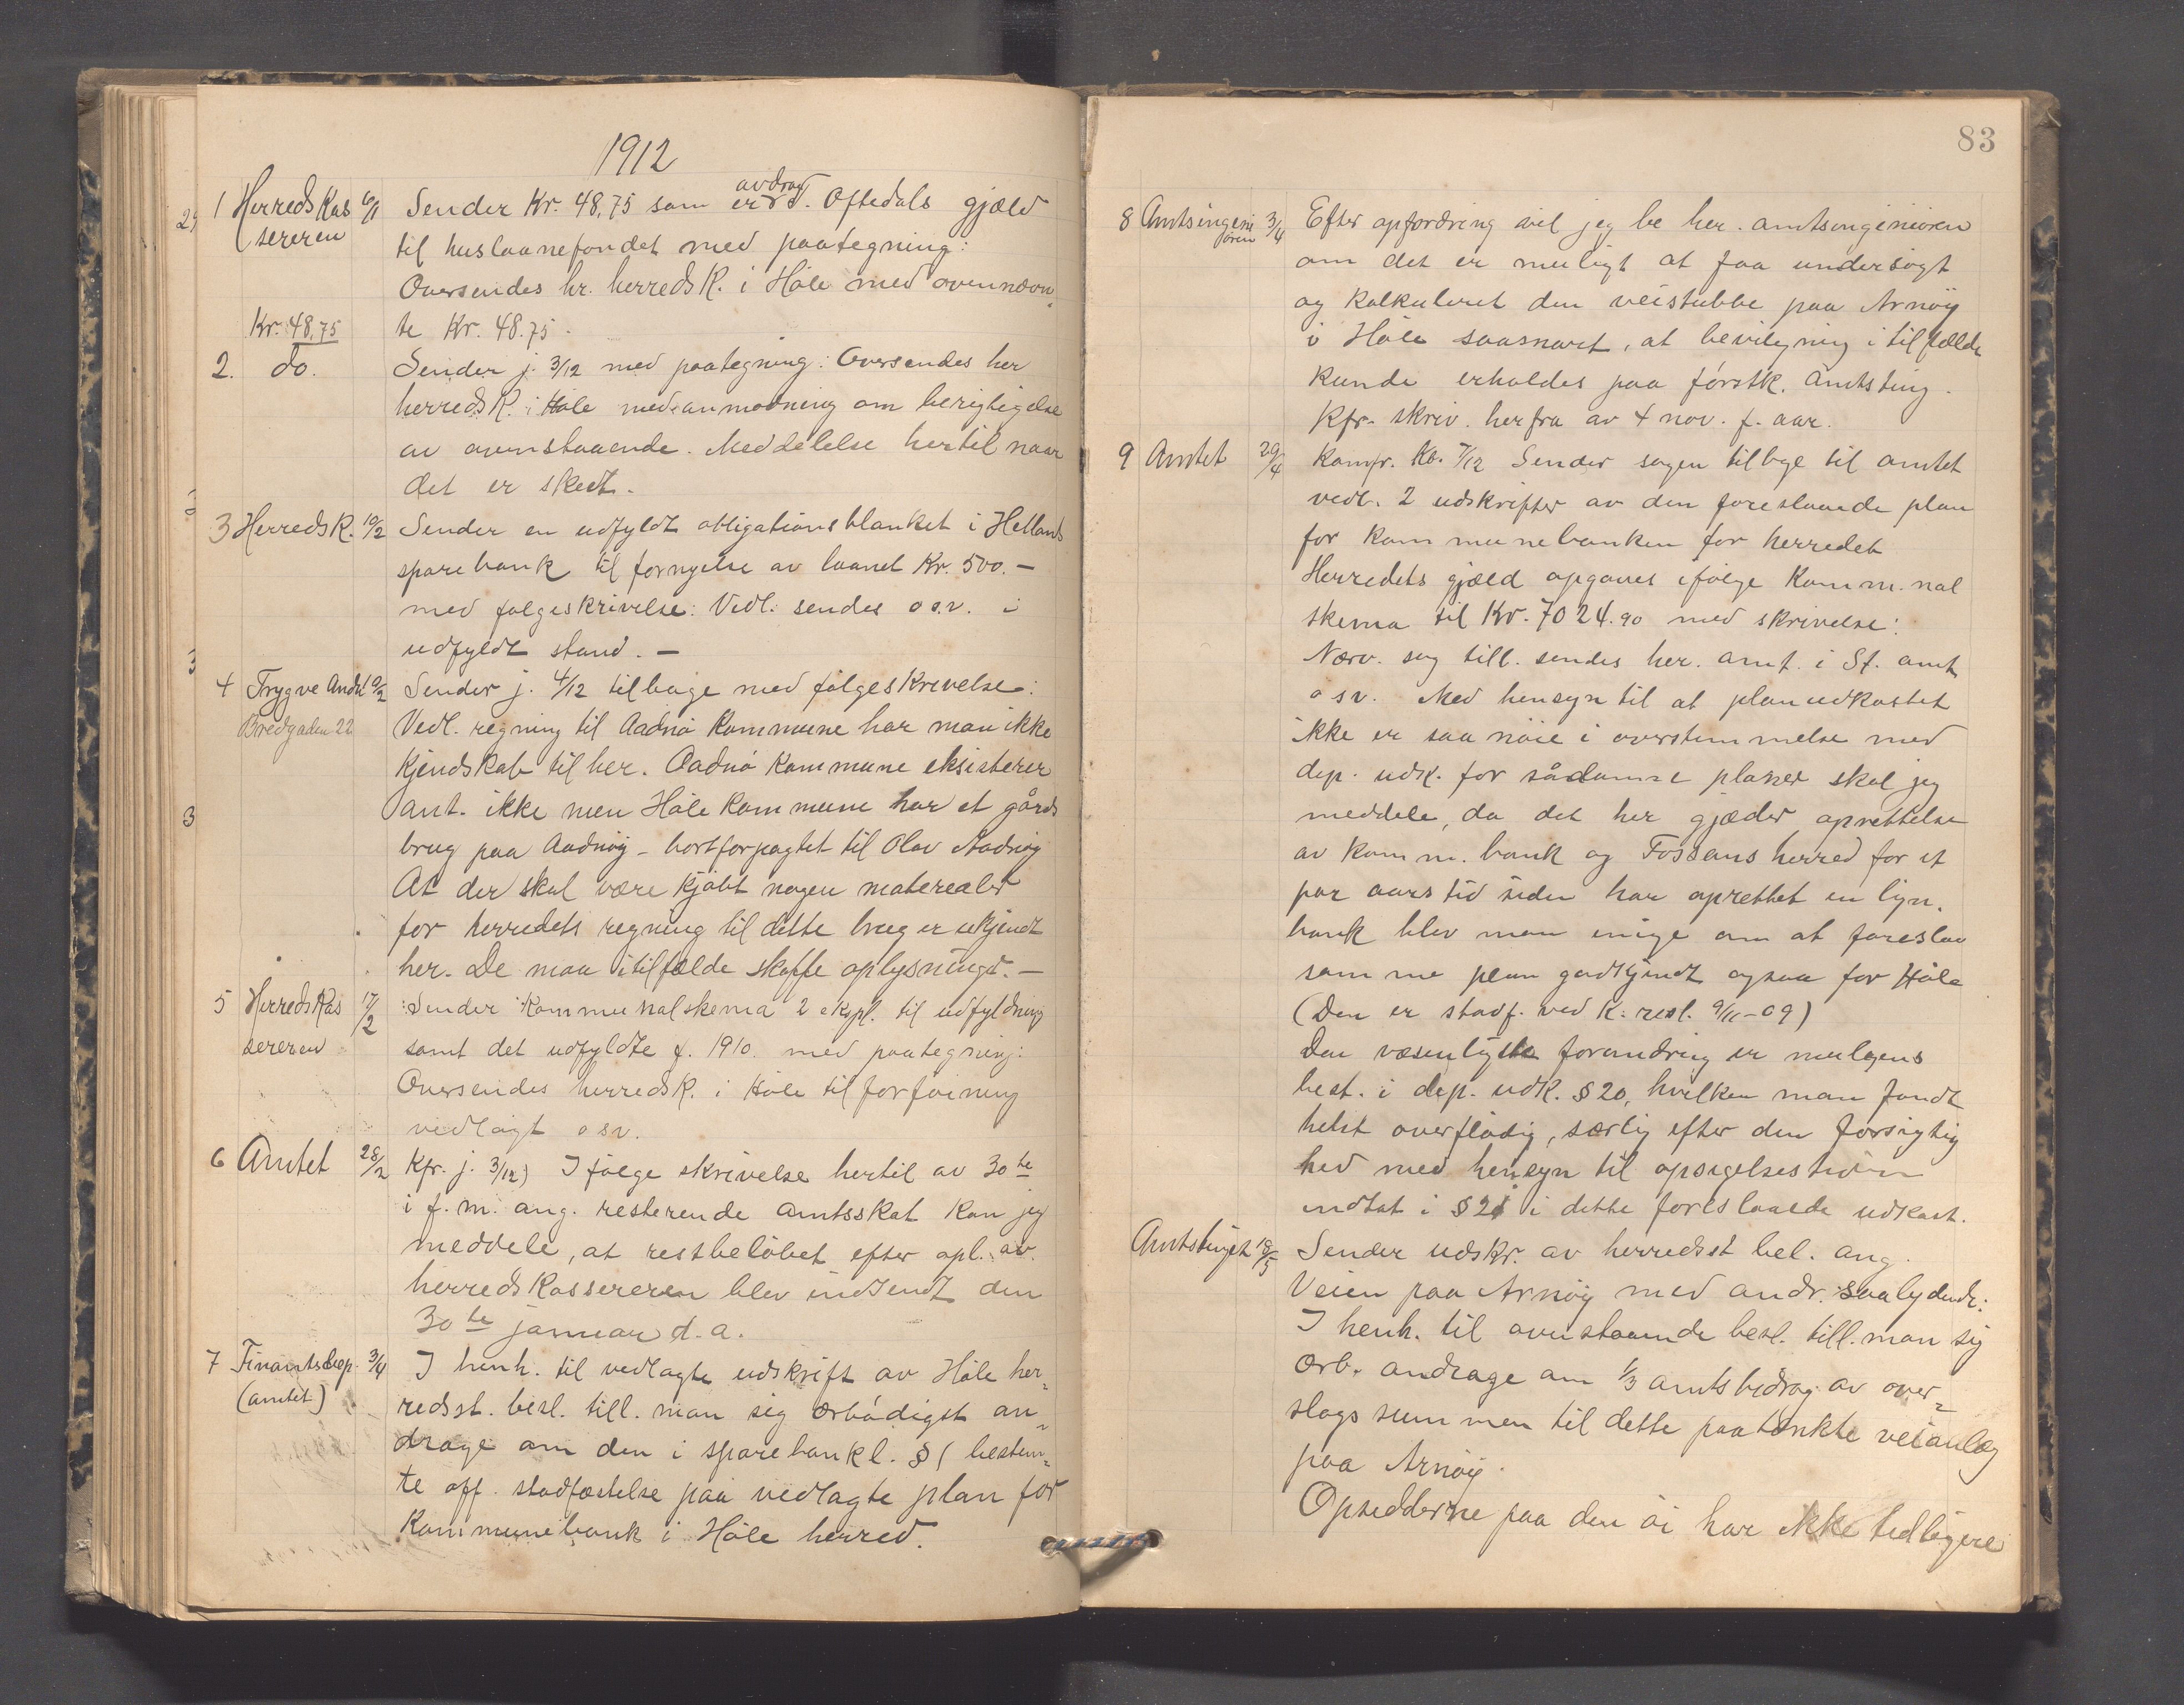 1912
1 Herredskas 6/1 Sender Kr. 48,75 som avdrag er S. Oftedals gjæld
sereren til huslaanefondet med paategning:
Oversendes hr. herredsk. i Høle med ovennævn-
Kr. 48,75 te Kr. 48.75.
2. do. Sender j. 3/12 med paategning: Oversendes her
herredsk. i Høle med anmodning om berigtigelse
av ovenstaaende. Meddelelse hertil naar
det er skedt.
3 Herredsk. 10/2 Sender en udfyldt obligationsblanket i Hetlands
sparebank til fornyelse av laanet Kr. 500.—
med følgeskrivelse: Vedl. sendes osv. i
udfyldt stand. —
4 Trygve 10/2 Sender j. 4/12 tilbage med følgeskrivelse:
Bredgaden 22 Vedl. regning til Aadnø Kommune har man ikke
kjendskab til her. Aadnø kommune eksisterer
ant. ikke men Høle kommune har et gårds
brug paa Aadnøy – bortforpagtet til Olav Aadnøy
At der skal være kjøbt nogen materealer
for herredets regning til dette brug er ukjendt
her. De maa i tilfælde skaffe oplysninger. —
5 Herredskas 17/2 Sender Kommunalskema 2 ekspl. til udfyldning
sereren samt det udfyldte f. 1910. med paategning:
Oversendes herredsk. i Høle til forføining
vedlagt osv.
6 Amtet 28/2 Kfr. j. 3/12) Ifølge skrivelse hertil av 30te
i f. m. ang. resterende amtsskat kan jeg
meddele, at restbeløbet efter opl. av
herredskassereren blev indsendt den
30te januar d.a.
7 Finantsdep. 3/4 I henh. til vedlagte udskrift av Høle her-
(amtet) redsst. besl. till. man sig ærbødigst an-
drage om den i sparebankl. § 1 bestem-
te off. stadfæstelse paa vedlagte plan for
Kommunebank i Høle herred.
83
8 Amtsingeni 3/4 Efter opfordring vil jeg be her. amtsingeniøren
øren om det er muligt at faa undersøgt
og kalkuleret den veistubbe paa Arnøy
i Høle saasnart, at bevilgning i tilfælde
kunde erholdes paa førstk. amtsting.
Kfr. skriv. herfra av 4 nov. f. aar.
9 Amtet 29/4 Konfr. Kb. 7/12 Sender sagen tilbage til amtet
vedl. 2 udskrifter av den foreslaaede plan
for kommunebanken for herredet
Herredets gjæld opgaves ifølge Komm.nal
skema til Kr. 7024.90 med skrivelse:
Nærv. sag till. sendes her. amt. i St. amt
osv. Med hensyn til at planudkastet
ikke er saa nøie i overstemmelse med
dep. udk. for sådanne planer skal jeg
meddele, da det her gjæder oprettelse
av komm. bank og Fossans herred for et
par aars tid siden har oprettet en lign.
bank blev man enige om at foreslaa
samme plan godkjendt ogsaa for Høle
(Den er stadf. ved k. resl. 9/11-09)
Den væsentligste forandring er mulgens
best. i dep. udk. § 20, hvilken man fandt
helst overflødig, særlig efter den forsigtig
hed med hensyn til opsigelsestiden
indtat i § 21 i dette foreslaaede udkast.
Amtstinget 18/5 Sender udskr. av herredsst bel. ang.
Veien paa Arnøy med andr. saalydende:
I henh. til ovenstaaende besl. till. man sig
ærb. andrage om 1/3 amtsbidrag av over-
slagssummen til dette paatænkte veianlæg
paa Arnøy.
Opsidderne paa den øi har ikke tidligere